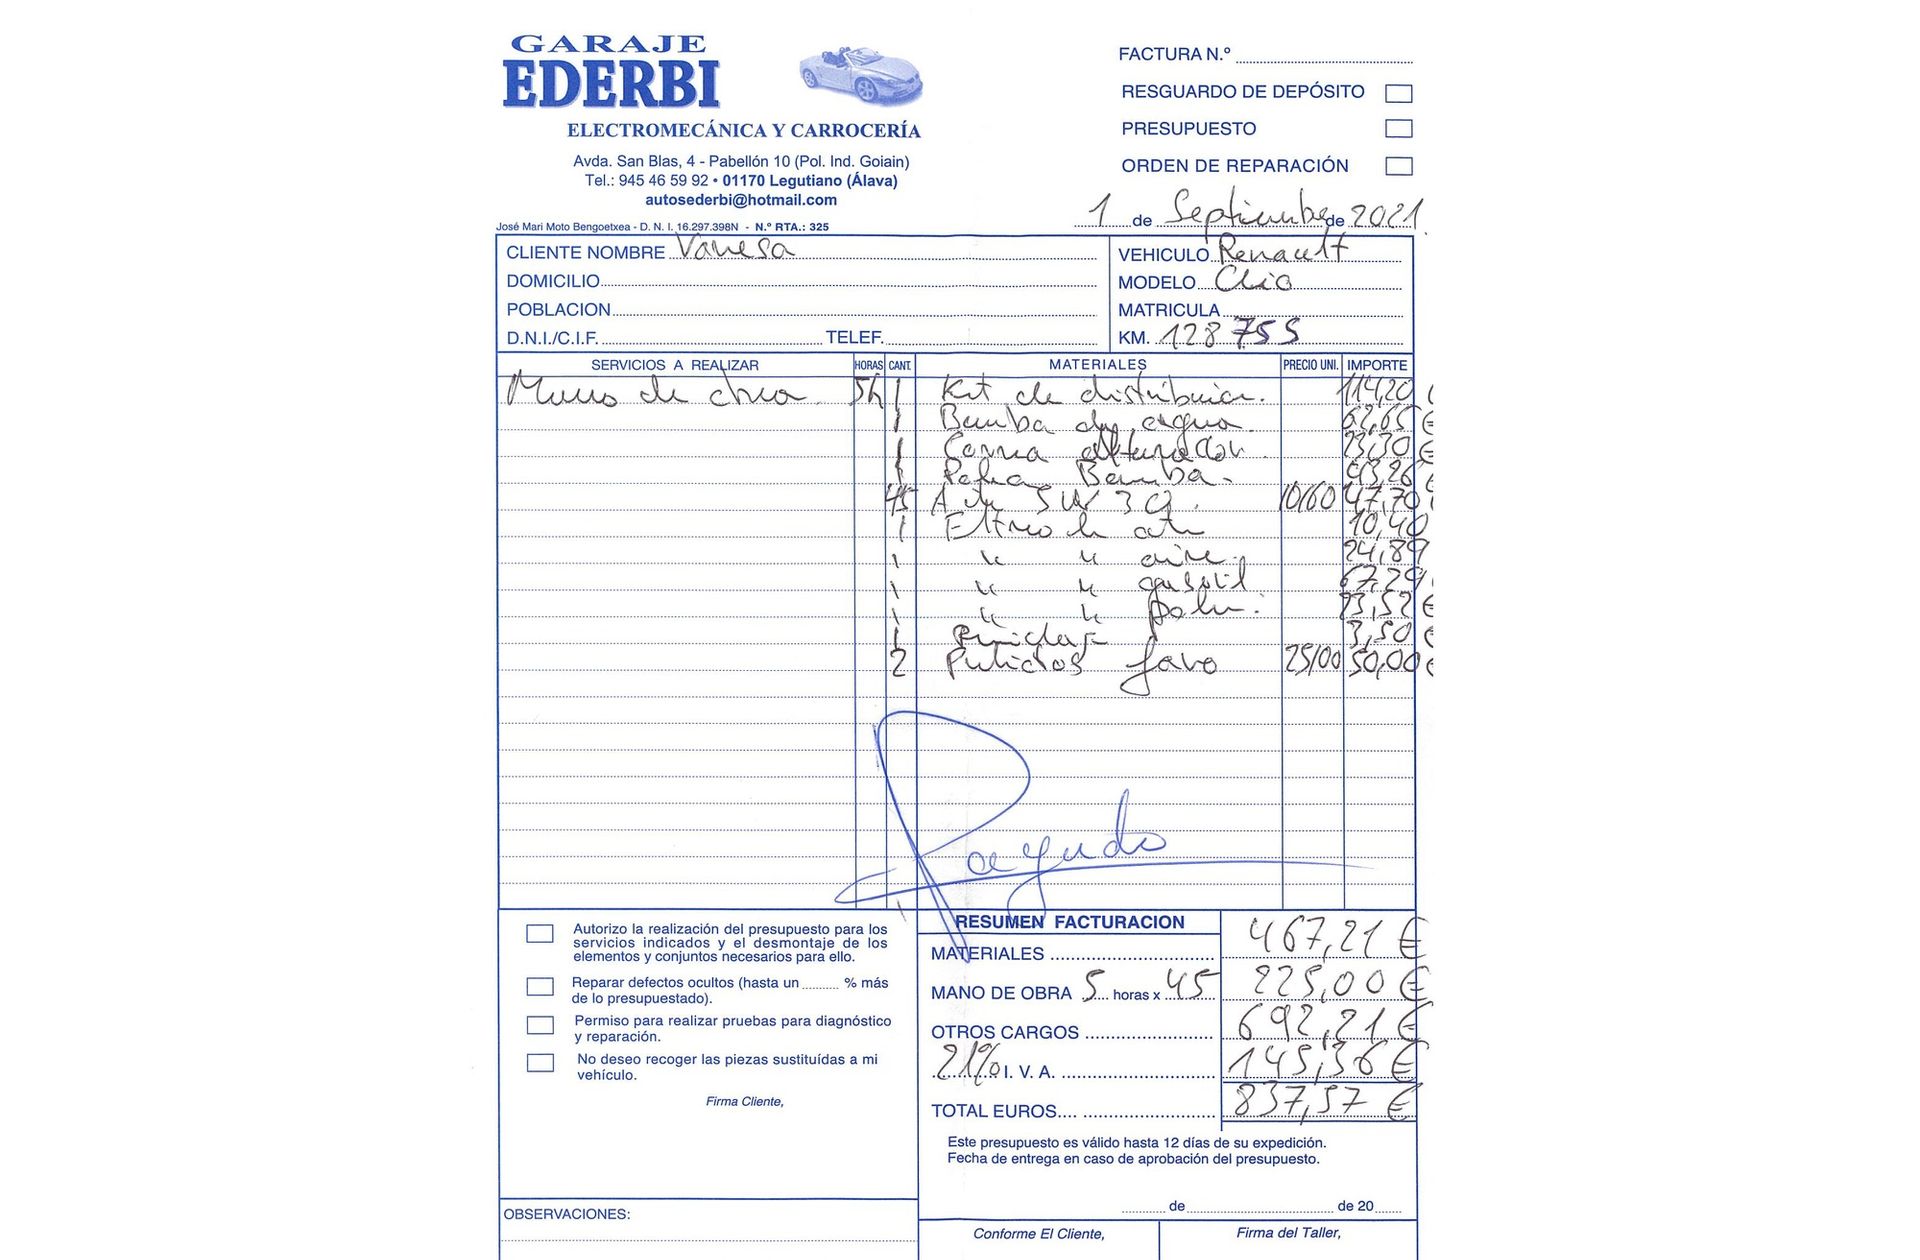 GARAJE
EDERBI
ELECTROMECÁNICA Y CARROCERÍA
Avda. San Blas, 4 - Pabellón 10 (Pol. Ind. Goiain)
Tel.: 945 46 59 92 • 01170 Legutiano (Álava)
autosederbi@hotmail.com
José Mari Moto Bengoetxea - D. N. I. 16.297.398N - N.º RTA.: 325
FACTURA N.º
RESGUARDO DE DEPÓSITO
PRESUPUESTO
ORDEN DE REPARACIÓN
1 de Septiembre de 2021
CLIENTE NOMBRE Vanesa
DOMICILIO
POBLACION
D.N.I./C.I.F. TELEF.
VEHICULO Renault
MODELO Clio
MATRICULA
KM. 128755
SERVICIOS A REALIZAR HORAS CANT. MATERIALES PRECIO UNI. IMPORTE
Mano de obra 5h 1 Kit de distribucion. 114,20 €
1 Bomba de agua. 62,65 €
1 Correa alternador. 23,30 €
1 Polea Bomba. €
45 5W30. 10/60 47,70 €
1 Filtro de 10,40
1 " " aire. 24,89
1 " " gasoil 67,29
1 " " polen. €
1 3,50 €
2 faro 25/00 50,00 €
Pagado
Autorizo la realización del presupuesto para los
servicios indicados y el desmontaje de los
elementos y conjuntos necesarios para ello.
Reparar defectos ocultos (hasta un ......... % más
de lo presupuestado).
Permiso para realizar pruebas para diagnóstico
y reparación.
No deseo recoger las piezas sustituídas a mi
vehículo.
Firma Cliente,
OBSERVACIONES:
RESUMEN FACTURACION
MATERIALES 467,21 €
MANO DE OBRA 5 horas x 45 225,00 €
OTROS CARGOS 692,21 €
21% I. V. A. 145,36 €
TOTAL EUROS 837,57 €
Este presupuesto es válido hasta 12 días de su expedición.
Fecha de entrega en caso de aprobación del presupuesto.
de de 20
Conforme El Cliente, Firma del Taller,